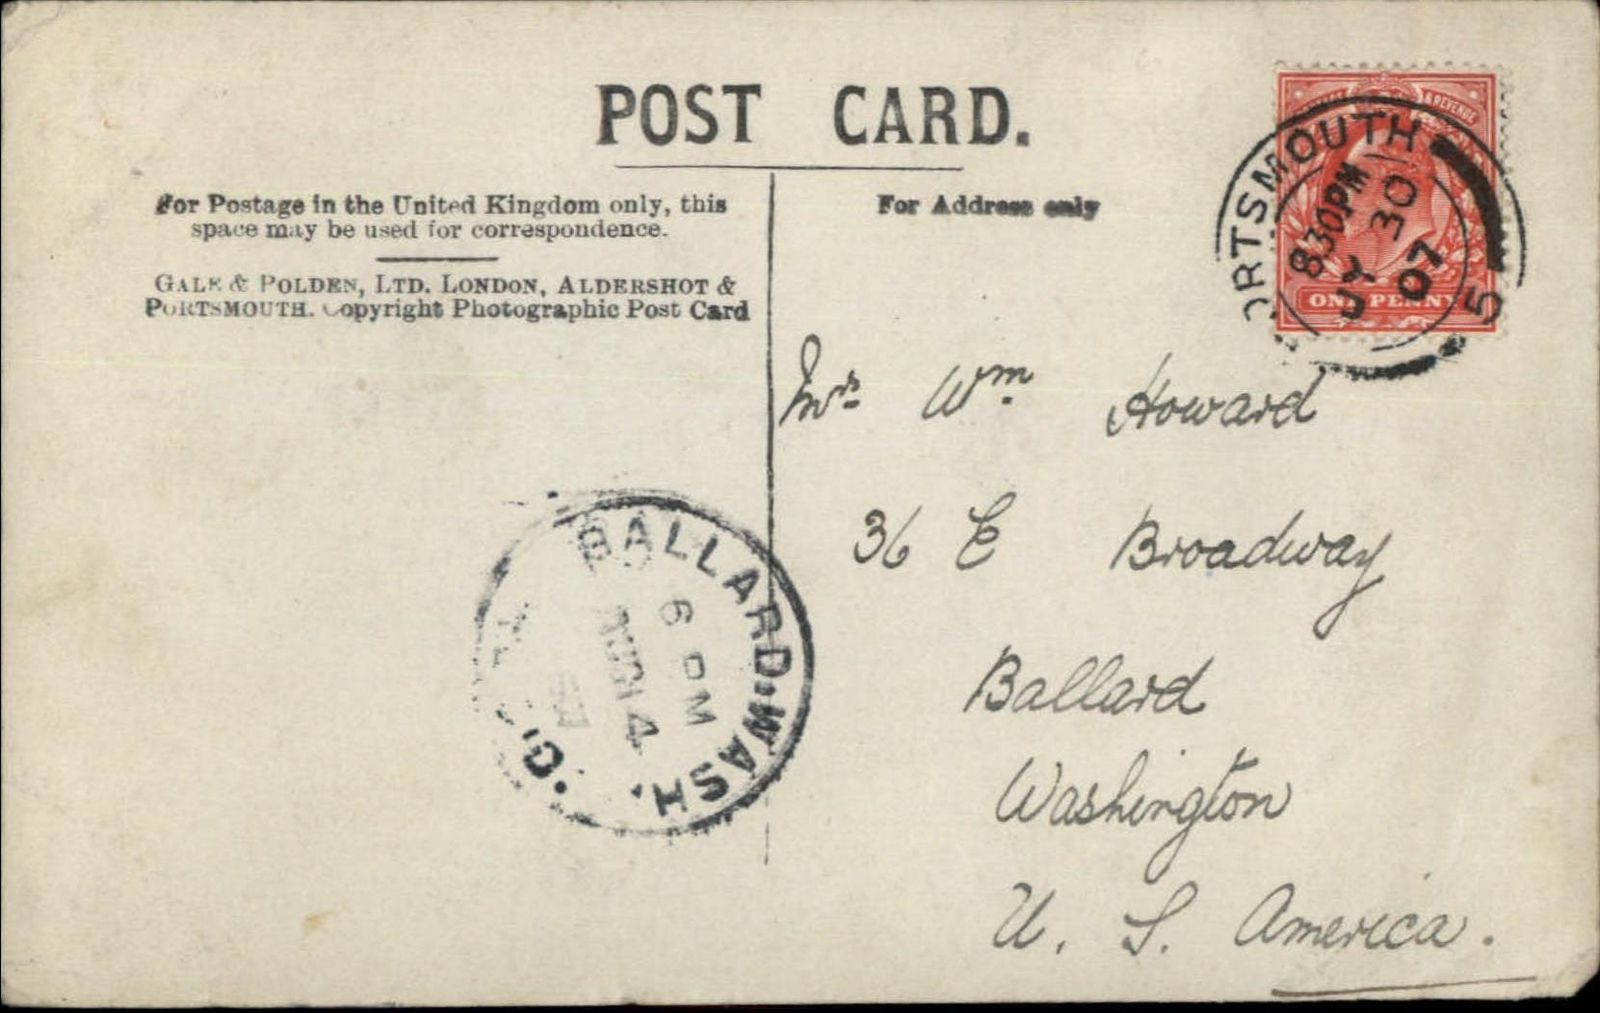 POST CARD.
For Postage in the United Kingdom only, this
space may be used for correspondence.
GALE & POLDEN, LTD. LONDON, ALDERSHOT &
PORTSMOUTH. Copyright Photographic Post Card
For Address only
& REVENUE
ONE PENNY
PORTSMOUTH
830PM
JY 30
07
5
Mrs Wm Howard
36 E Broadway
Ballard
Washington
U. S. America.
BALLARD. WASH.
6 PM
AUG 14